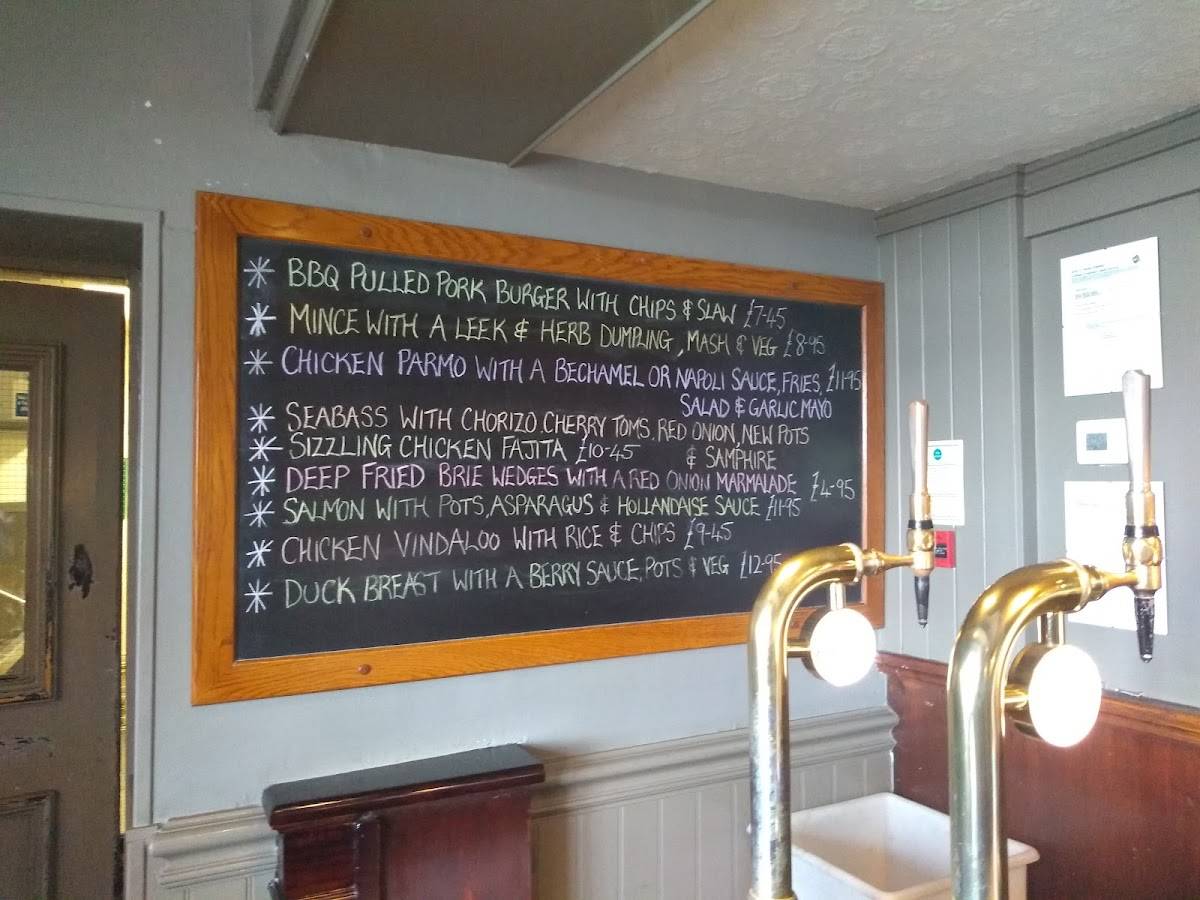 * BBQ PULLED PORK BURGER WITH CHIPS & SLAW £7-45
* MINCE WITH A LEEK & HERB DUMPLING, MASH & VEG £8-95
* CHICKEN PARMO WITH A BECHAMEL OR NAPOLI SAUCE, FRIES, £11-95
SALAD & GARLIC MAYO
* SEABASS WITH CHORIZO, CHERRY TOMS, RED ONION, NEW POTS
& SAMPHIRE
* SIZZLING CHICKEN FAJITA £10-45
* DEEP FRIED BRIE WEDGES WITH A RED ONION MARMALADE £4-95
* SALMON WITH POTS, ASPARAGUS & HOLLANDAISE SAUCE £11-95
* CHICKEN VINDALOO WITH RICE & CHIPS £9-45
* DUCK BREAST WITH A BERRY SAUCE, POTS & VEG £12-95